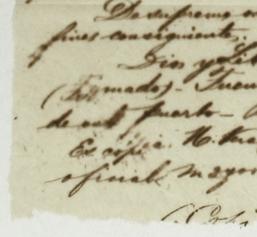 De supremo
fines consiguiente,
Dios y Lib
(Firmado) - Juan
de este puerto -
Es copia. H.
oficial mayor